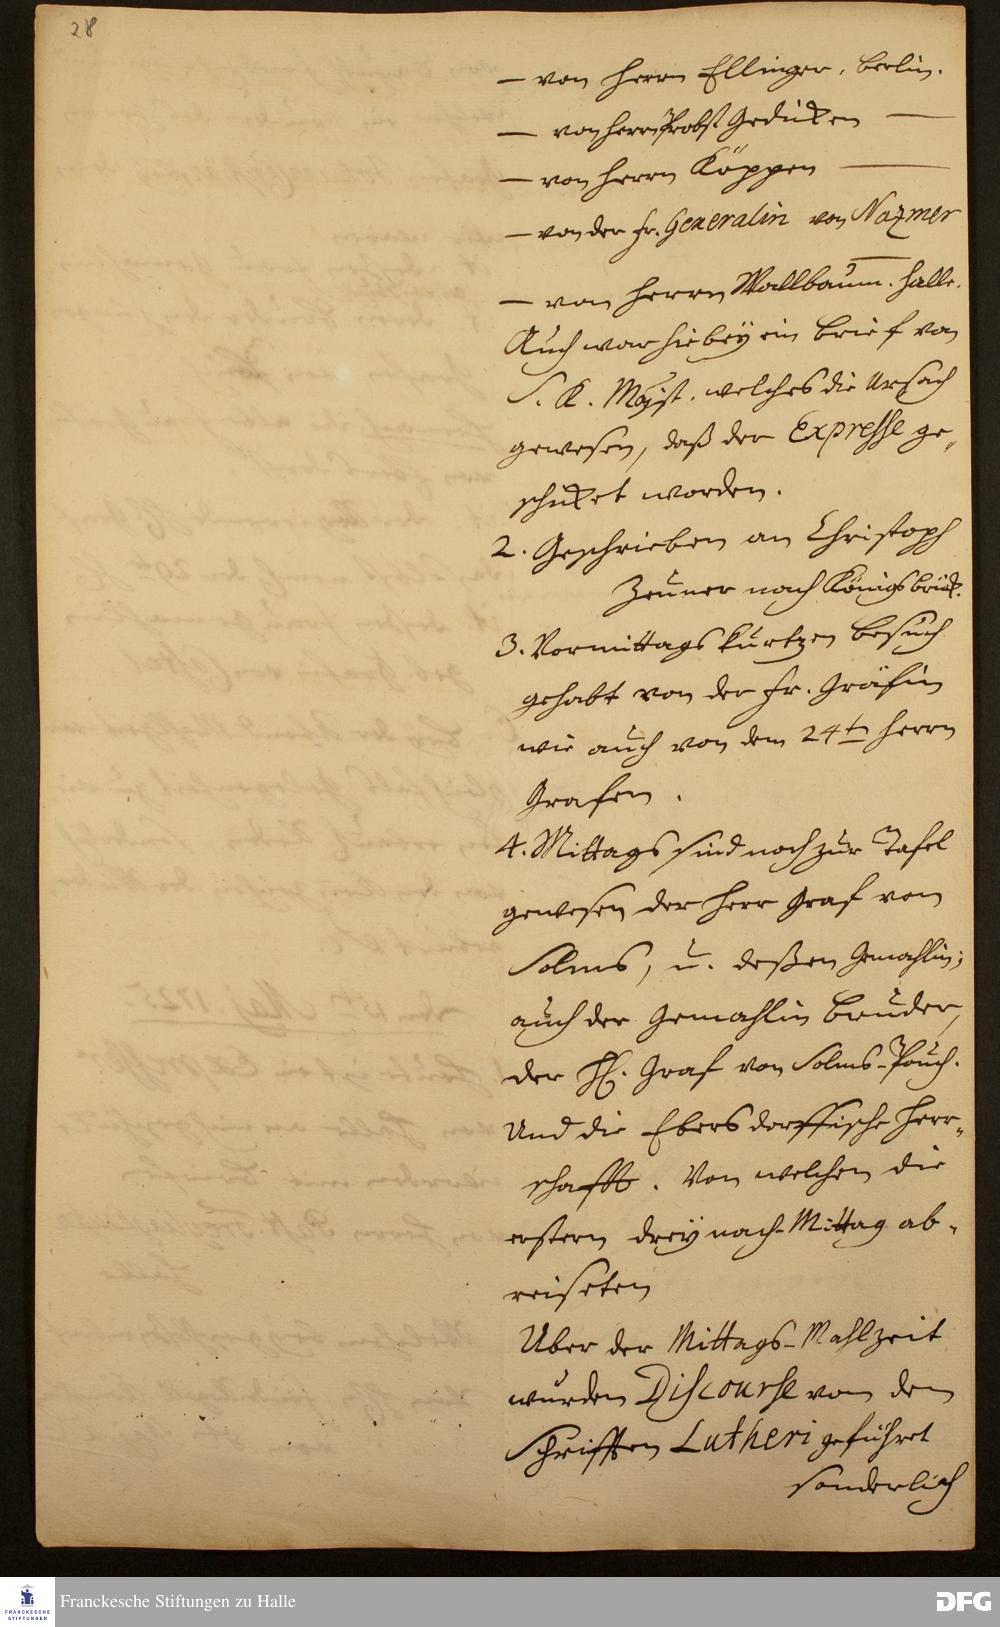 28
— von Herrn Ellinger. Berlin.
— von Herrn Probst Gedicken —
— von Herrn Köppen —
— von der Fr. Generalin von Nazmer —
— von Herrn Wallbaum. Halle.
Auch war hiebeÿ ein Brief von
S. K. Majst. welches die Ursach
gewesen, daß der Expresse ge„
schicket worden.
2. Geschrieben an Christoph
Zeuner nach Königsbrück.
3. Vormittags kurtzen besuch
gehabt von der Fr. Gräfin
wie auch von dem 24t. Herrn
Grafen.
4. Mittags sind noch zur Tafel
gewesen der Herr Graf von
Solms, u. deßen Gemahlin;
auch der Gemahlin Bruder,
der H. Graf von Solms-Pouch.
Und die Ebersdorffische Herr„
schafft. Von welchen die
erstern dreÿ nach-Mittag ab-
reiseten
Uber der Mittags-Mahlzeit
wurden Discourse von den
Schrifften Lutheri geführet
sonderlich
FRANCKESCHE STIFTUNGEN
Franckesche Stiftungen zu Halle
DFG